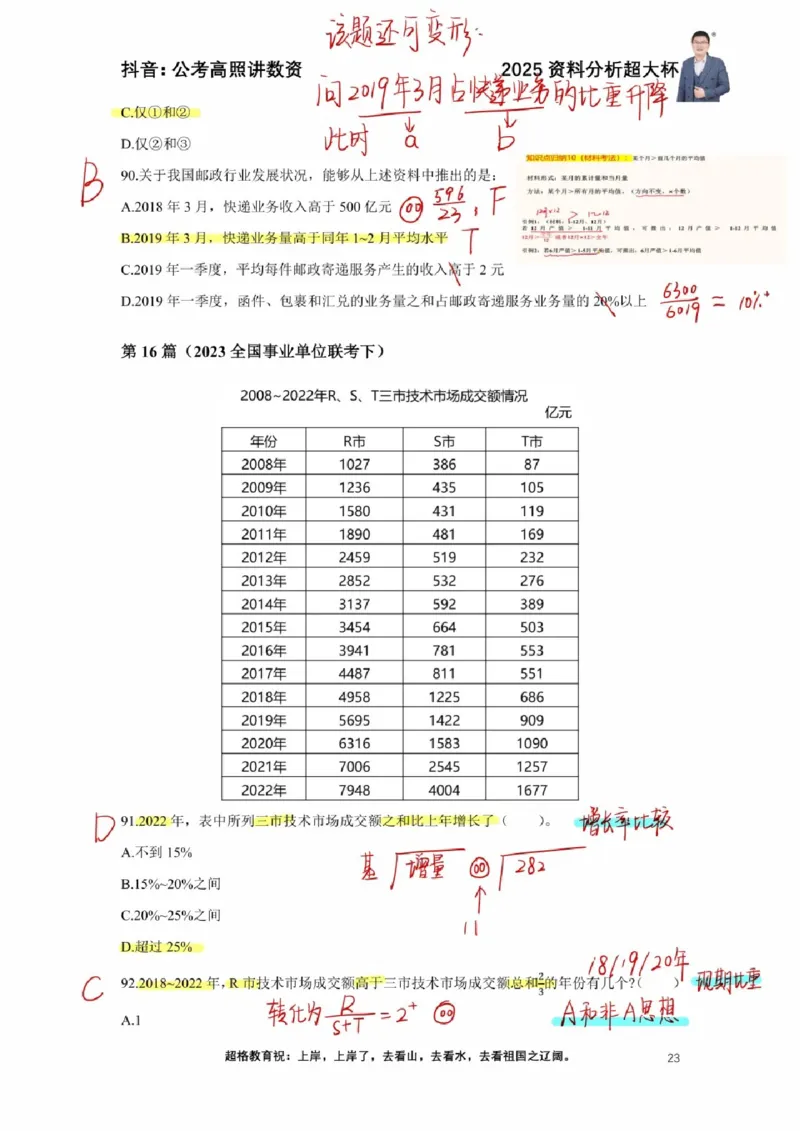 该题还可变形:
抖音：公考高照讲数资
2025 资料分析超大杯
问2019年3月占快递业务的比重升降
此时 a b
C.仅①和②
D.仅②和③
B
90.关于我国邮政行业发展状况，能够从上述资料中推出的是：
A.2018 年 3 月，快递业务收入高于 500 亿元
596
23
F
B.2019 年 3 月，快递业务量高于同年 1~2 月平均水平
T
C.2019 年一季度，平均每件邮政寄递服务产生的收入高于 2 元
D.2019 年一季度，函件、包裹和汇兑的业务量之和占邮政寄递服务业务量的 20%以上
6300
6019
= 10%+
某个月＞前几个月的平均值
材料形式：某月的累计量和当月量
方法：某个月＞所有月的平均值，（方向不变，n个数）
若 12 月产值＞ 1-11 月平均值，可推出：12 月产值＞ 1-12 月平均值
第 16 篇（2023 全国事业单位联考下）
2008~2022年R、S、T三市技术市场成交额情况
亿元
年份 R市 S市 T市
2008年 1027 386 87
2009年 1236 435 105
2010年 1580 431 119
2011年 1890 481 169
2012年 2459 519 232
2013年 2852 532 276
2014年 3137 592 389
2015年 3454 664 503
2016年 3941 781 553
2017年 4487 811 551
2018年 4958 1225 686
2019年 5695 1422 909
2020年 6316 1583 1090
2021年 7006 2545 1257
2022年 7948 4004 1677
D
91.2022 年，表中所列三市技术市场成交额之和比上年增长了（ ）。
增长率比较
A.不到 15%
基 增量 282
11
B.15%~20%之间
C.20%~25%之间
D.超过 25%
18/19/20年
C
92.2018~2022 年，R 市技术市场成交额高于三市技术市场成交额总和2/3的年份有几个?（ ）
现期比重
转化为 R/S+T = 2+
A和非A思想
A.1
超格教育祝：上岸，上岸了，去看山，去看水，去看祖国之辽阔。
23